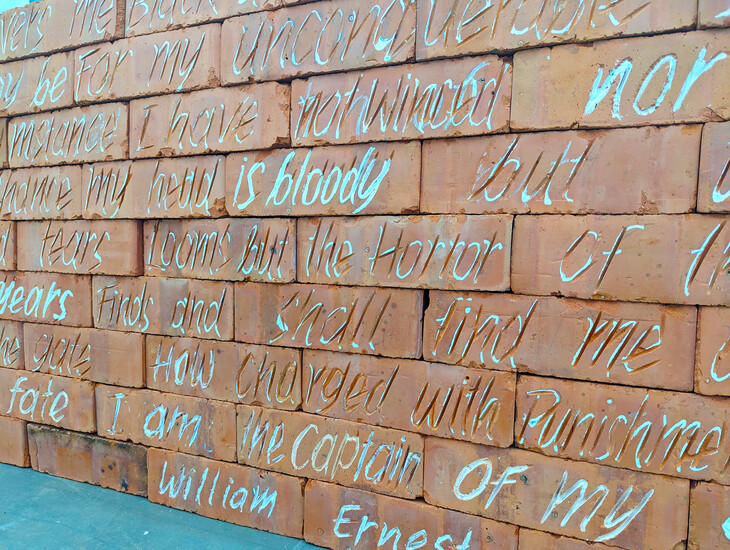 vers me
Black
my be For my unconquerable
mstance I have not winced nor
chance my head is bloody but
tears Looms but the Horror of
years Finds and shall find me
the gate How charged with Punishme
fate I am the Captain Of my
William Ernest